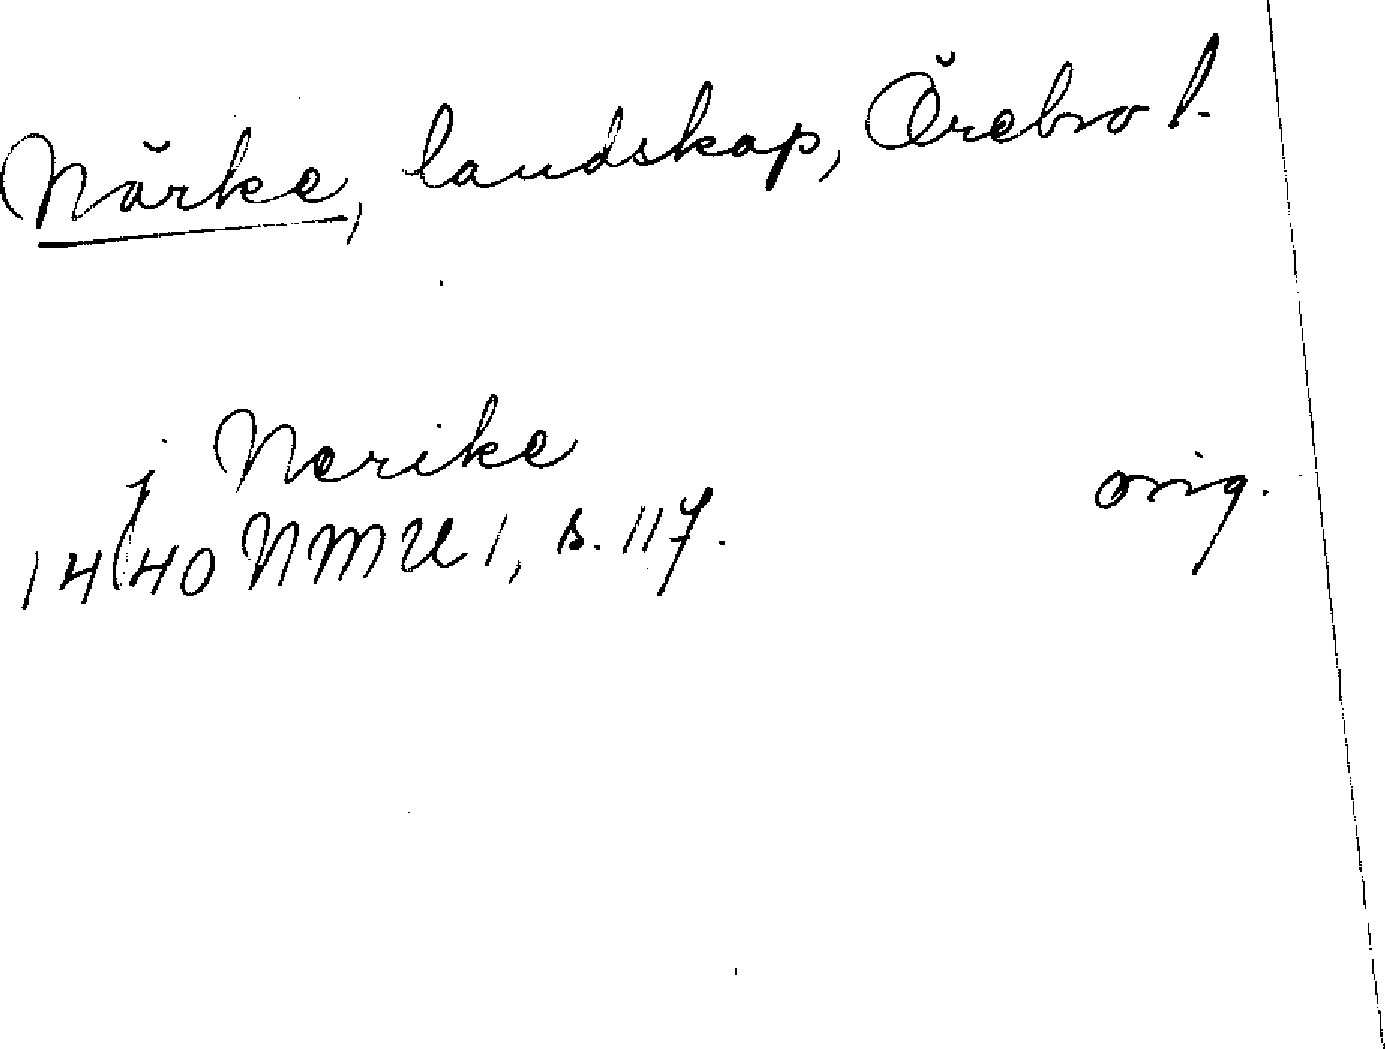 Närke, landskap, Örebro l.
j Nerike
orig.
1440 NMU 1, s. 117.